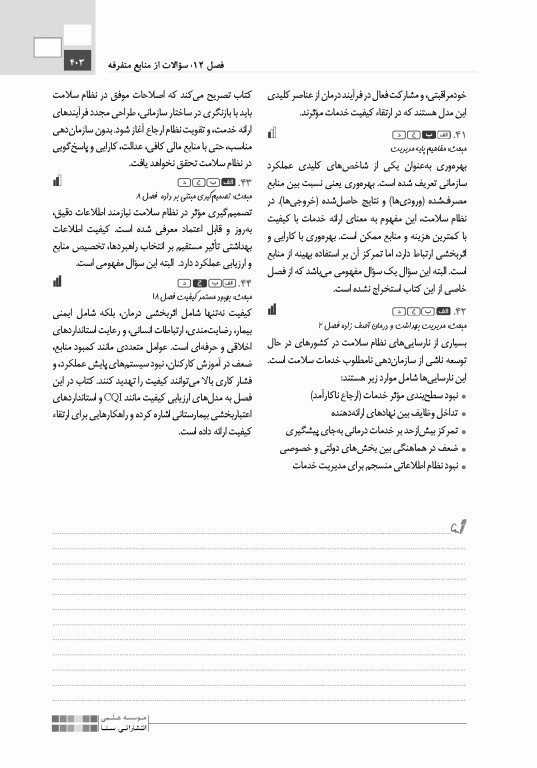 ۴۰۳
فصل ۱۲: سؤالات از منابع متفرقه
خودمراقبتی، و مشارکت فعال در فرآیند درمان از عناصر کلیدی
این مدل هستند که در ارتقاء کیفیت خدمات مؤثرند.
۴۱. الف ب ج د
مبحث: مفاهیم پایه مدیریت
بهره‌وری به‌عنوان یکی از شاخص‌های کلیدی عملکرد
سازمانی تعریف شده است. بهره‌وری یعنی نسبت بین منابع
مصرف‌شده (ورودی‌ها) و نتایج حاصل‌شده (خروجی‌ها). در
نظام سلامت، این مفهوم به معنای ارائه خدمات با کیفیت
با کمترین هزینه و منابع ممکن است. بهره‌وری با کارایی و
اثربخشی ارتباط دارد، اما تمرکز آن بر استفاده بهینه از منابع
است. البته این سؤال یک سؤال مفهومی می‌باشد که از فصل
خاصی از این کتاب استخراج نشده است.
۴۲. الف ب ج د
مبحث: مدیریت بهداشت و درمان آصف زاده فصل ۲
بسیاری از نارسایی‌های نظام سلامت در کشورهای در حال
توسعه ناشی از سازمان‌دهی نامطلوب خدمات سلامت است.
این نارسایی‌ها شامل موارد زیر هستند:
● نبود سطح‌بندی مؤثر خدمات (ارجاع ناکارآمد)
● تداخل وظایف بین نهادهای ارائه‌دهنده
● تمرکز بیش‌ازحد بر خدمات درمانی به‌جای پیشگیری
● ضعف در هماهنگی بین بخش‌های دولتی و خصوصی
● نبود نظام اطلاعاتی منسجم برای مدیریت خدمات
کتاب تصریح می‌کند که اصلاحات موفق در نظام سلامت
باید با بازنگری در ساختار سازمانی، طراحی مجدد فرآیندهای
ارائه خدمت، و تقویت نظام ارجاع آغاز شود. بدون سازمان‌دهی
مناسب، حتی با منابع مالی کافی، عدالت، کارایی و پاسخ‌گویی
در نظام سلامت تحقق نخواهد یافت.
۴۳. الف ب ج د
مبحث: تصمیم‌گیری مبتنی بر داده فصل ۸
تصمیم‌گیری مؤثر در نظام سلامت نیازمند اطلاعات دقیق،
به‌روز و قابل اعتماد معرفی شده است. کیفیت اطلاعات
بهداشتی تأثیر مستقیم بر انتخاب راهبردها، تخصیص منابع
و ارزیابی عملکرد دارد. البته این سؤال مفهومی است.
۴۴. الف ب ج د
مبحث: بهبود مستمر کیفیت فصل ۱۸
کیفیت نه‌تنها شامل اثربخشی درمان، بلکه شامل ایمنی
بیمار، رضایت‌مندی، ارتباطات انسانی، و رعایت استانداردهای
اخلاقی و حرفه‌ای است. عوامل متعددی مانند کمبود منابع،
ضعف در آموزش کارکنان، نبود سیستم‌های پایش عملکرد، و
فشار کاری بالا می‌توانند کیفیت را تهدید کنند. کتاب در این
فصل به مدل‌های ارزیابی کیفیت مانند CQI و استانداردهای
اعتباربخشی بیمارستانی اشاره کرده و راهکارهایی برای ارتقاء
کیفیت ارائه داده است.
موسسه علمی
انتشاراتی سنا